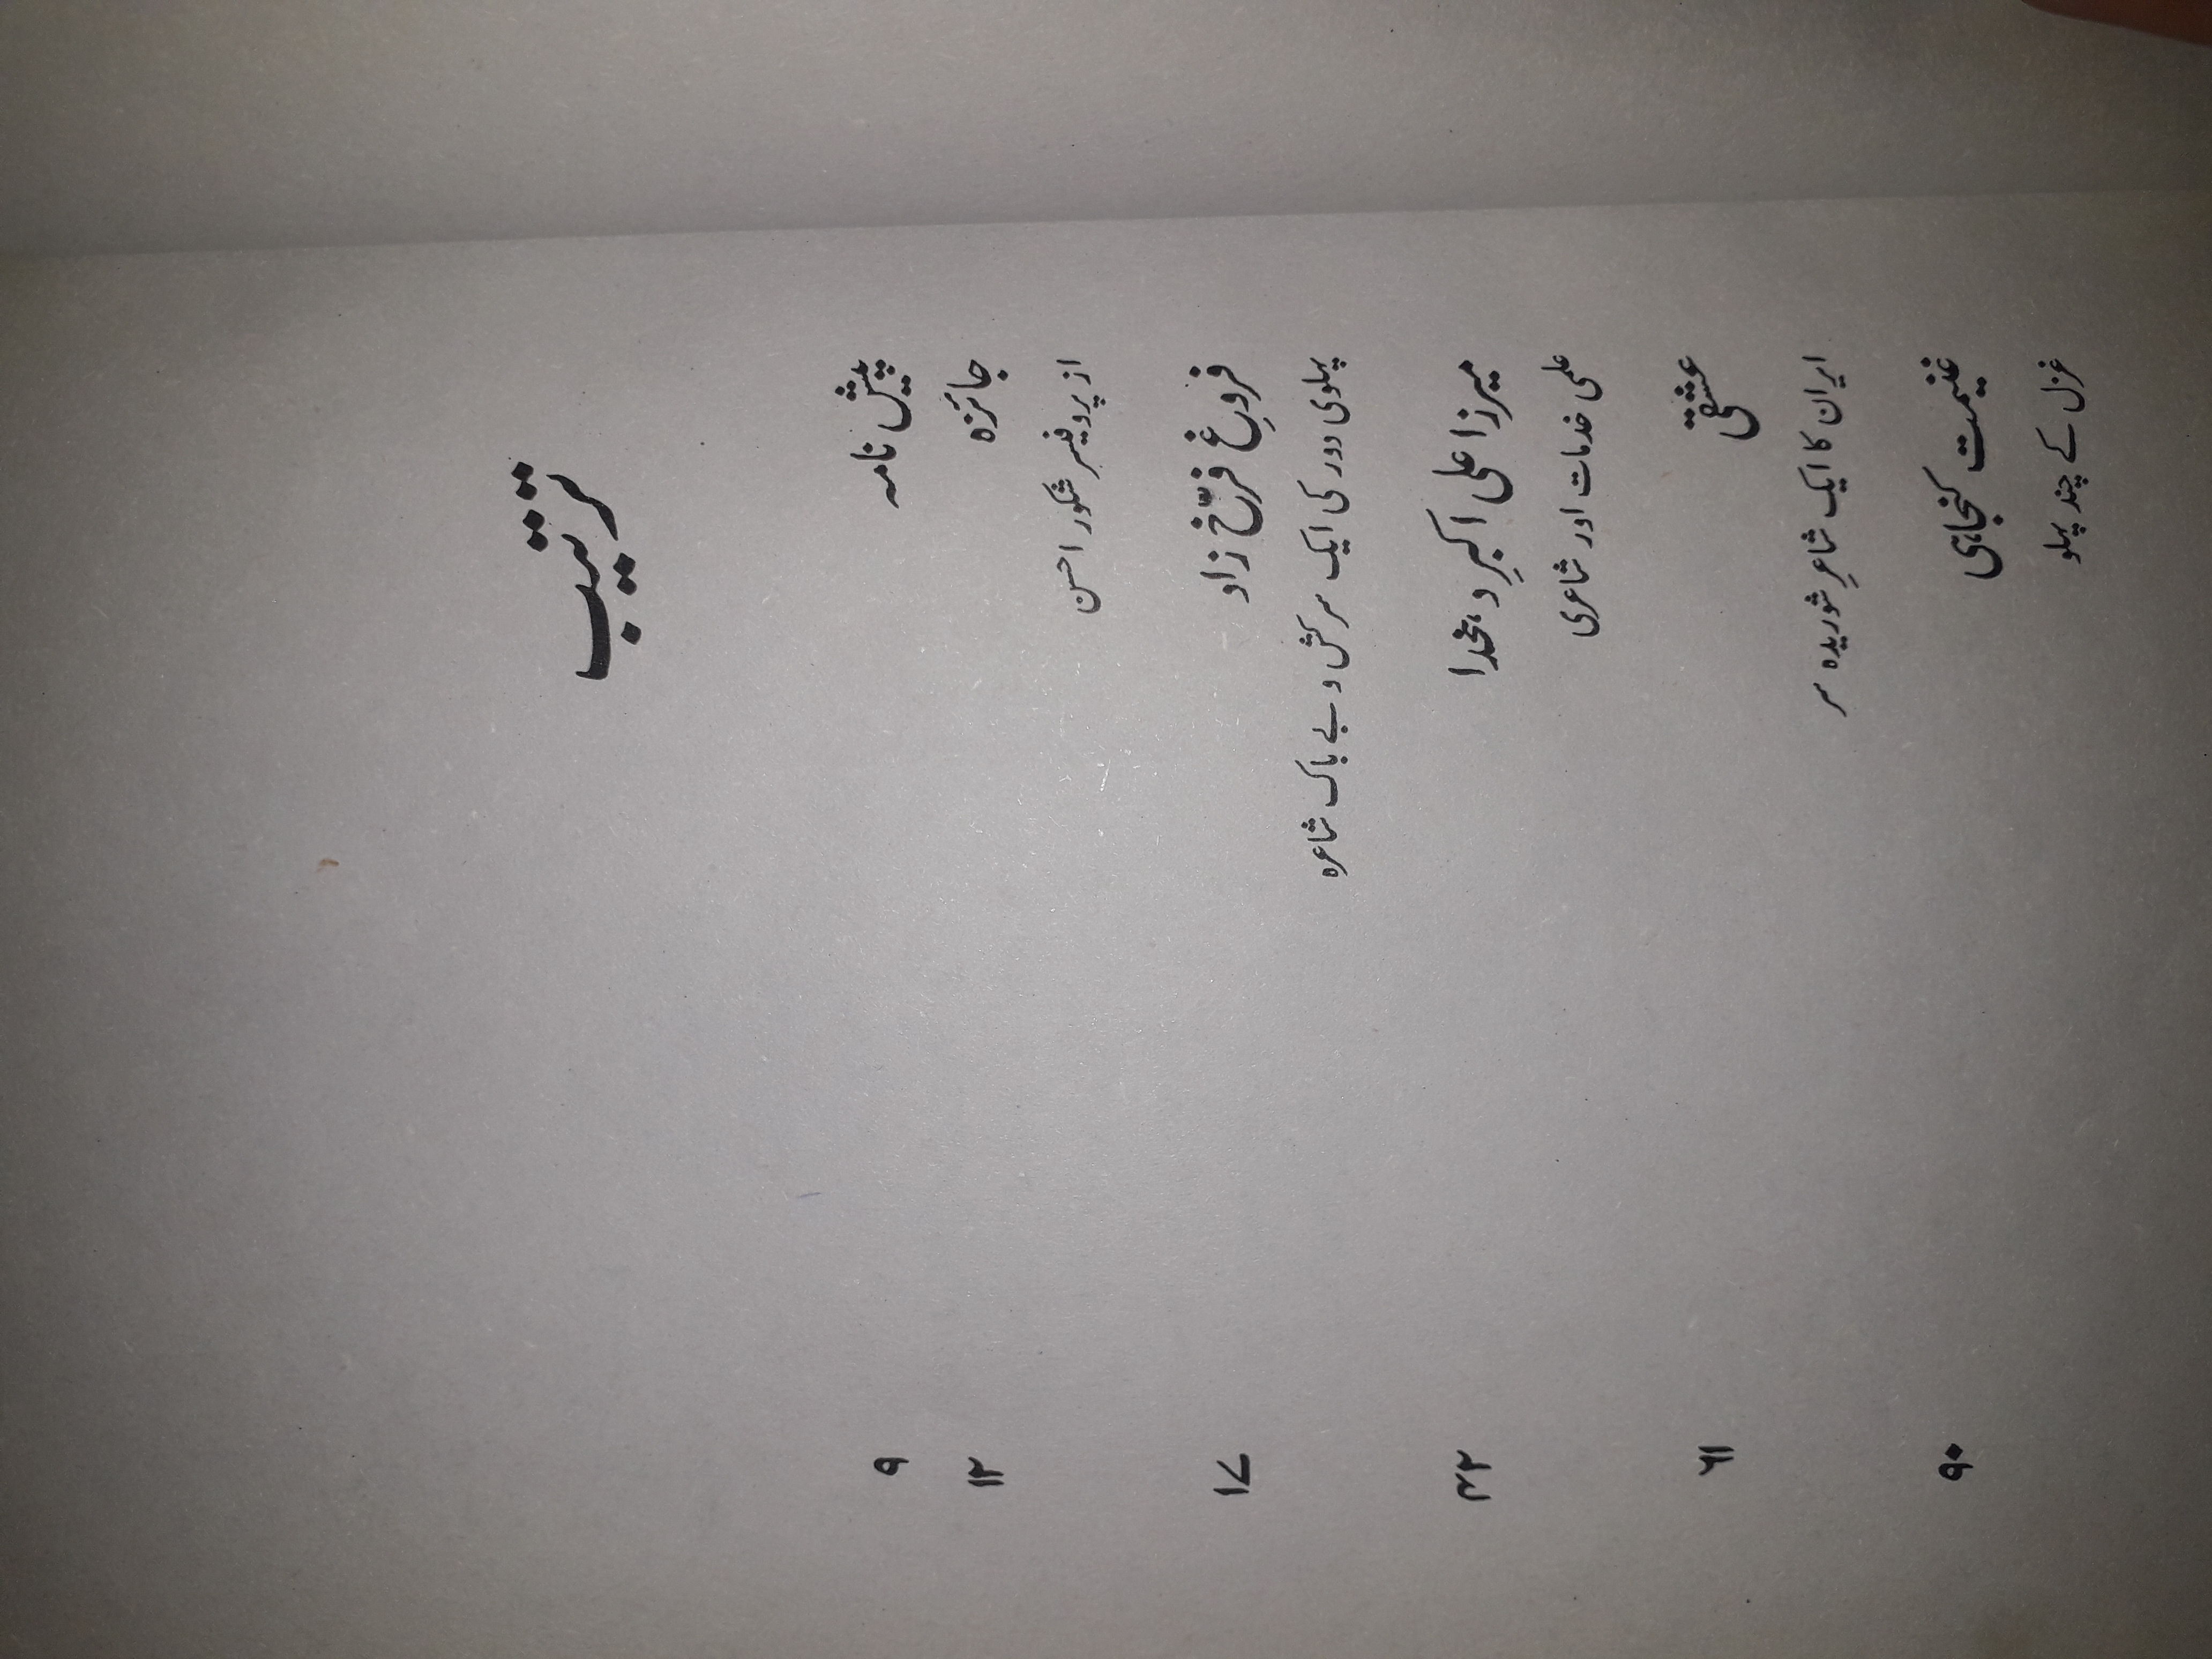 ترتیب
پیش نامہ ۹
جائزہ ۱۲
از پروفیسر شکور احسن
فروغِ فرخّ زاد ۱۷
پہلوی دور کی ایک سرکش و بے باک شاعرہ
میرزا علی اکبرِ دہخدا ۳۲
علمی خدمات اور شاعری
عشقی ۶۱
ایران کا ایک شاعرِ شوریدہ سر
غنیمت کنجاہی ۹۰
غزل کے چند پہلو